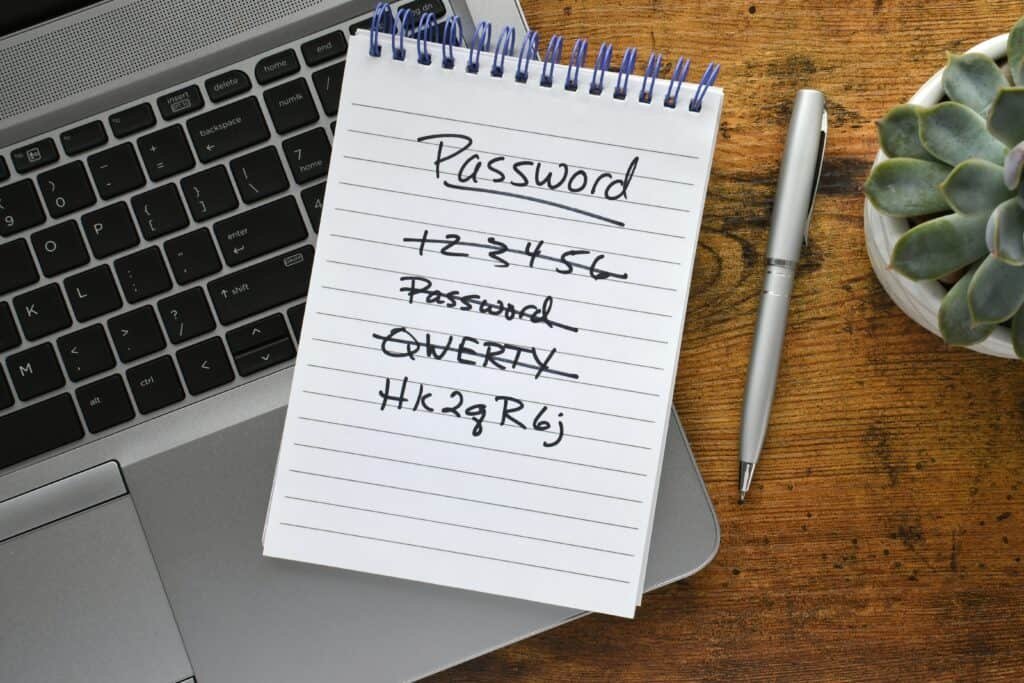 Password
123456
Password
QWERTY
Hk2qR6j
insert delete home end
( 9 ) 0 _ - + = backspace num lk /
O P { [ } ] | \ 7 home
K L : ; " ' enter 4
M < , > . ? / shift
alt ctrl